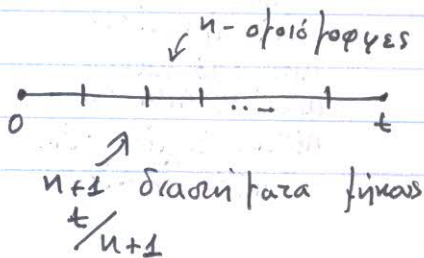 n - ομοιόμορφες
0 ... t
n+1 διαστήματα μήκους
t/n+1